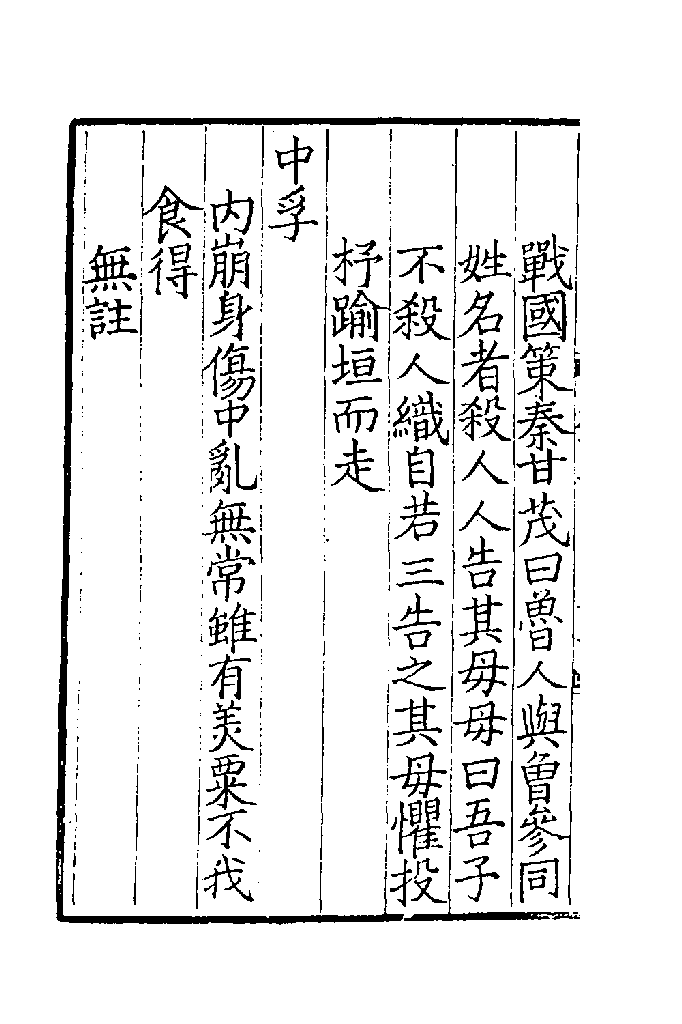 戰國策秦甘茂曰魯人與曾參同
姓名者殺人人告其母母曰吾子
不殺人織自若三告之其母懼投
杼踰垣而走
中孚
内崩身傷中亂無常雖有美粟不我
食得
無註